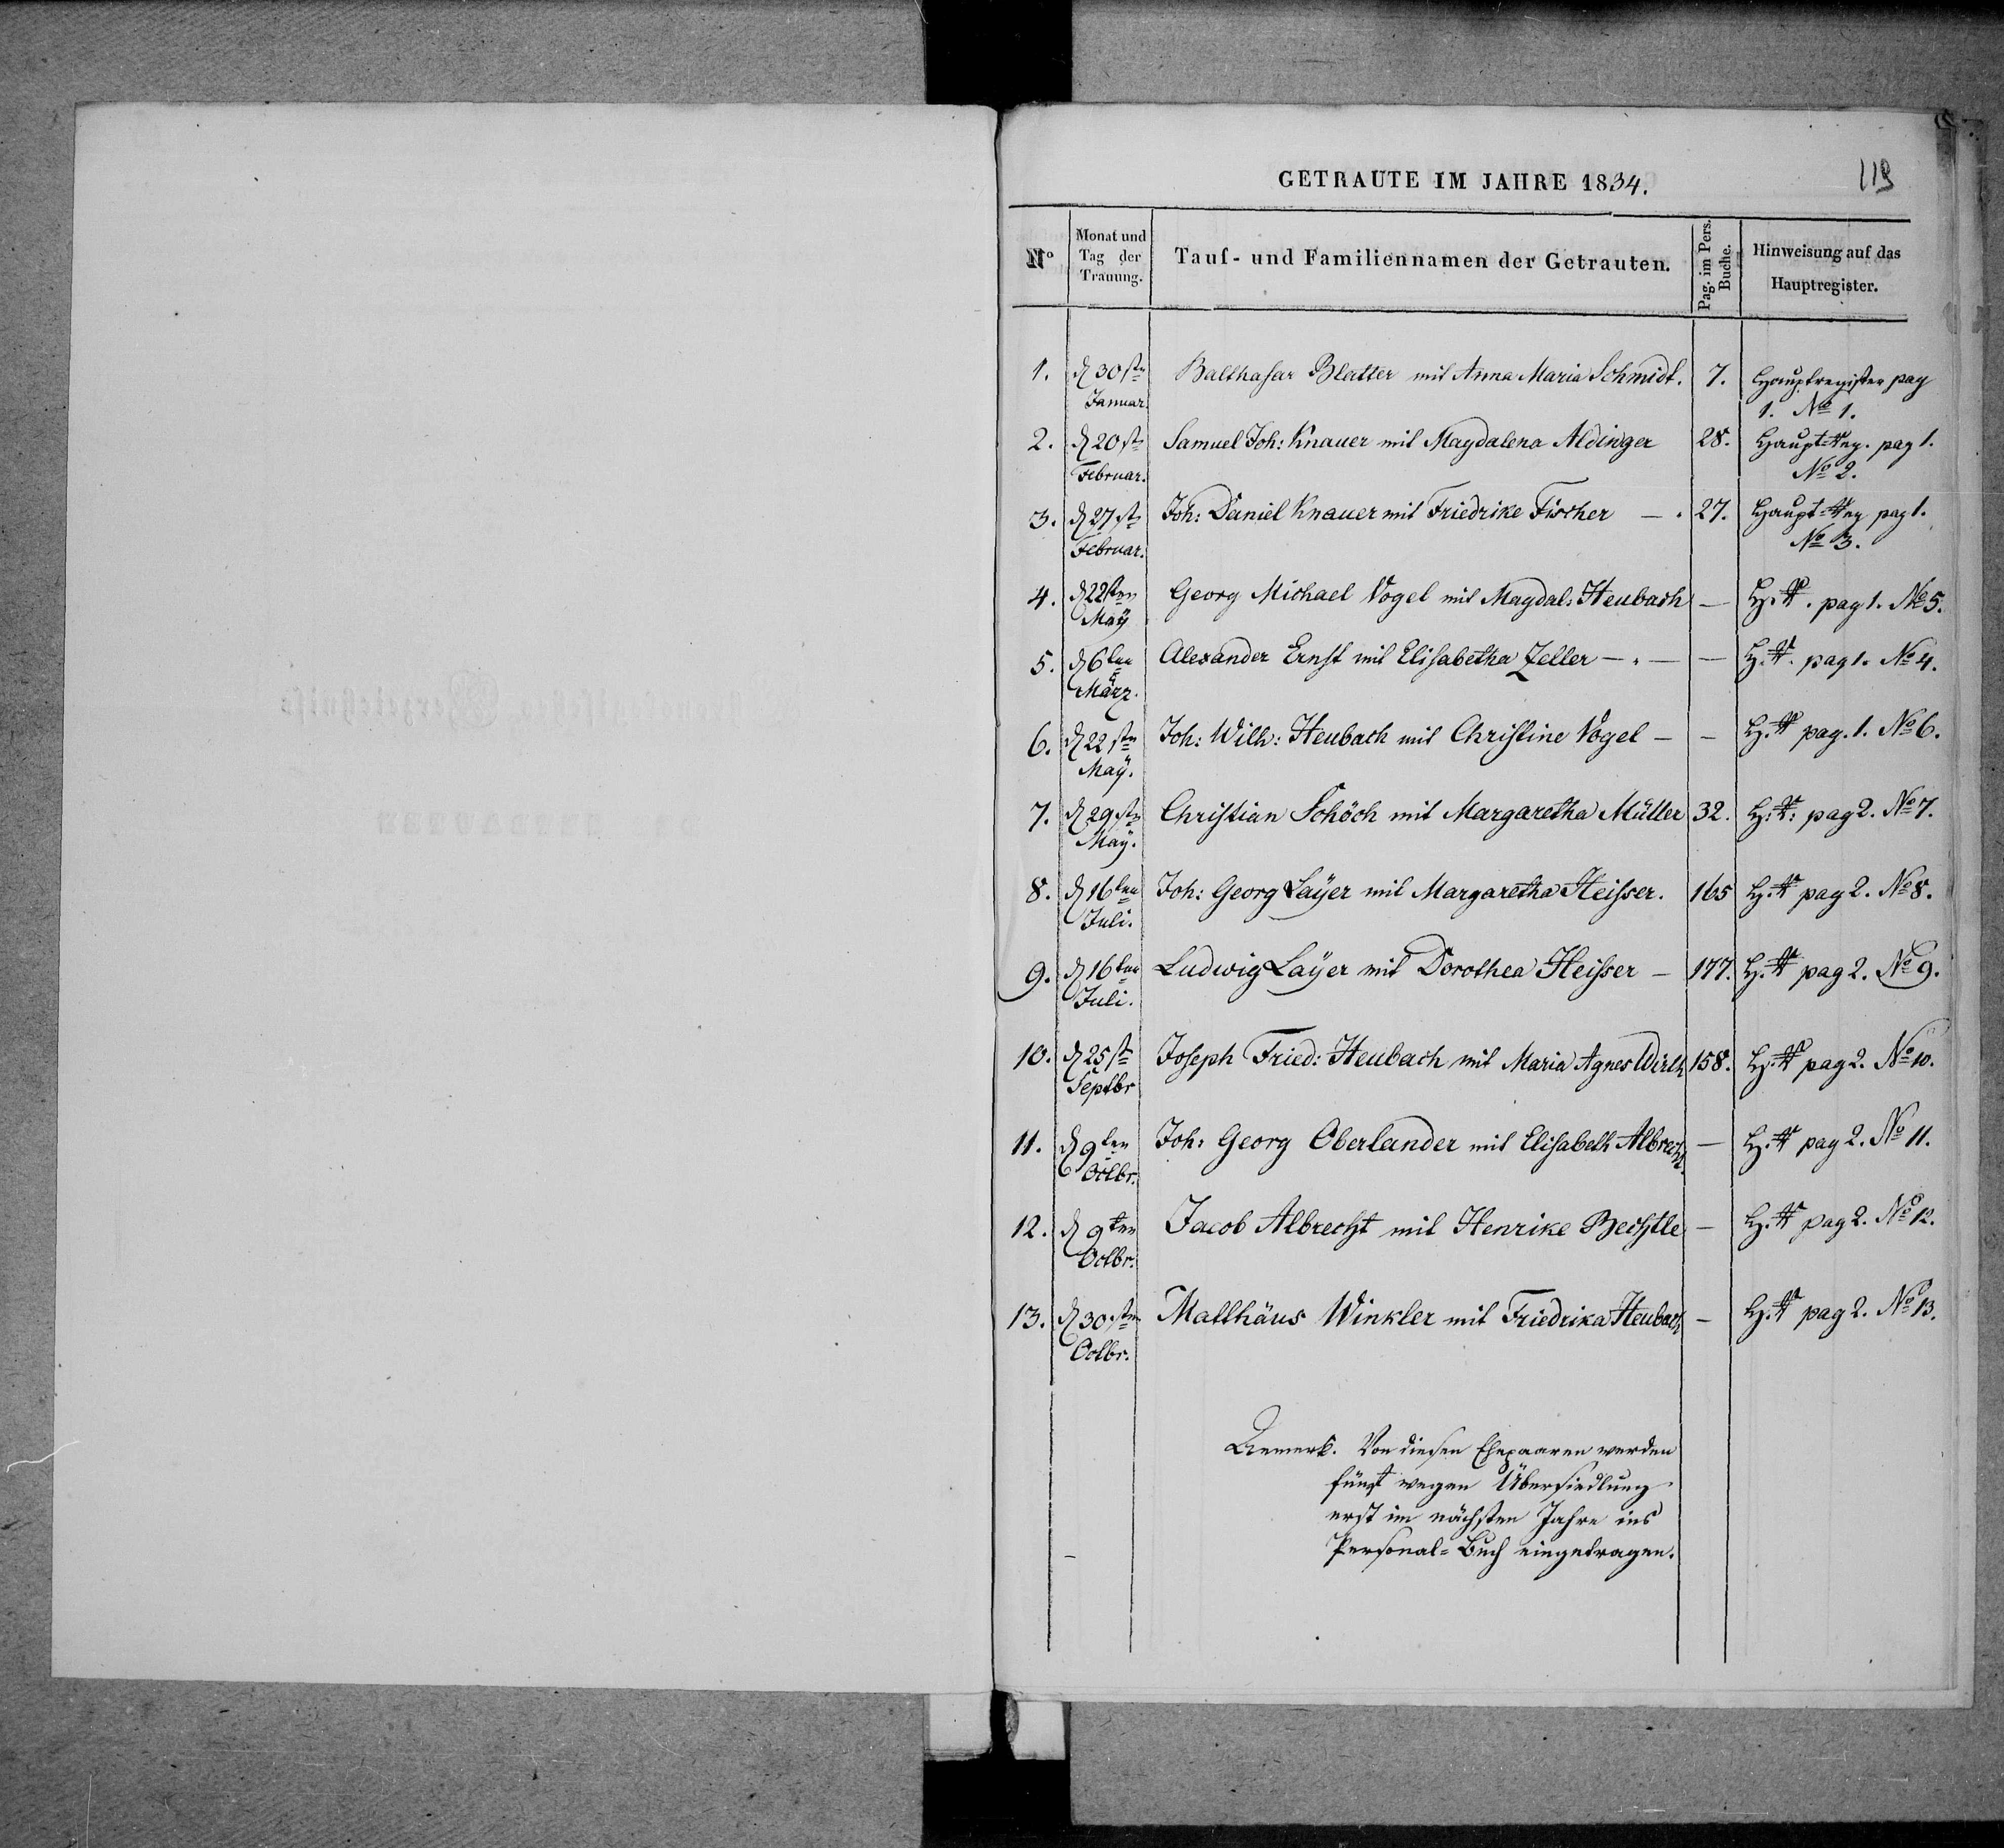 GETRAUTE IM JAHRE 1834.
119
No
Monat und Tag der Trauung.
Tauf- und Familiennamen der Getrauten.
Pag. im Pers. Buche.
Hinweisung auf das Hauptregister.
1. d 30sten Balthasar Blatter mit Anna Maria Schmidt. 7. Hauptregister pag
Januar. 1. No 1.
2. d 20st Samuel Joh: Knauer mit Magdalena Aldinger 28. Haupt-Reg. pag 1.
Februar. No 2.
3. d 27st Joh: Daniel Knauer mit Friedrike Fischer — . 27. Haupt-Reg pag 1.
Februar. No 3.
4. d 22sten Georg Michael Vogel mit Magdal: Heubach — H. R. pag 1. No 5.
May
5. d 6ten Alexander Ernst mit Elisabetha Zeller — . — — H. R. pag 1. No 4.
März.
6. d 22stn Joh: Wilh: Heubach mit Christine Vogel — — H. R pag. 1. No 6.
May.
7. d 29stn Christian Schöch mit Margaretha Müller 32. H: R: pag 2. No 7.
May.
8. d 16ten Joh: Georg Layer mit Margaretha Heisser. 165 H. R pag 2. No 8.
Juli.
9. d 16ten Ludwig Layer mit Dorothea Heisser — 177. H. R pag 2. No 9.
Juli.
10. d 25st Joseph Fried: Heubach mit Maria Agnes Wirth 158. H. R pag 2. No 10.
Septbr
11. d 9ten Joh: Georg Oberlander mit Elisabeth Albrecht. — H. R pag 2. No 11.
Octbr.
12. d 9ten Jacob Albrecht mit Henrike Bechtle — H. R pag 2. No 12.
Octbr.
13. d 30stn Matthäus Winkler mit Friedrika Heubach — H. R pag 2. No 13.
Octbr.
Anmerk. Von diesen Ehepaaren werden
fünf wegen Übersiedlung
erst im nächsten Jahre ins
Personal-Buch eingetragen.